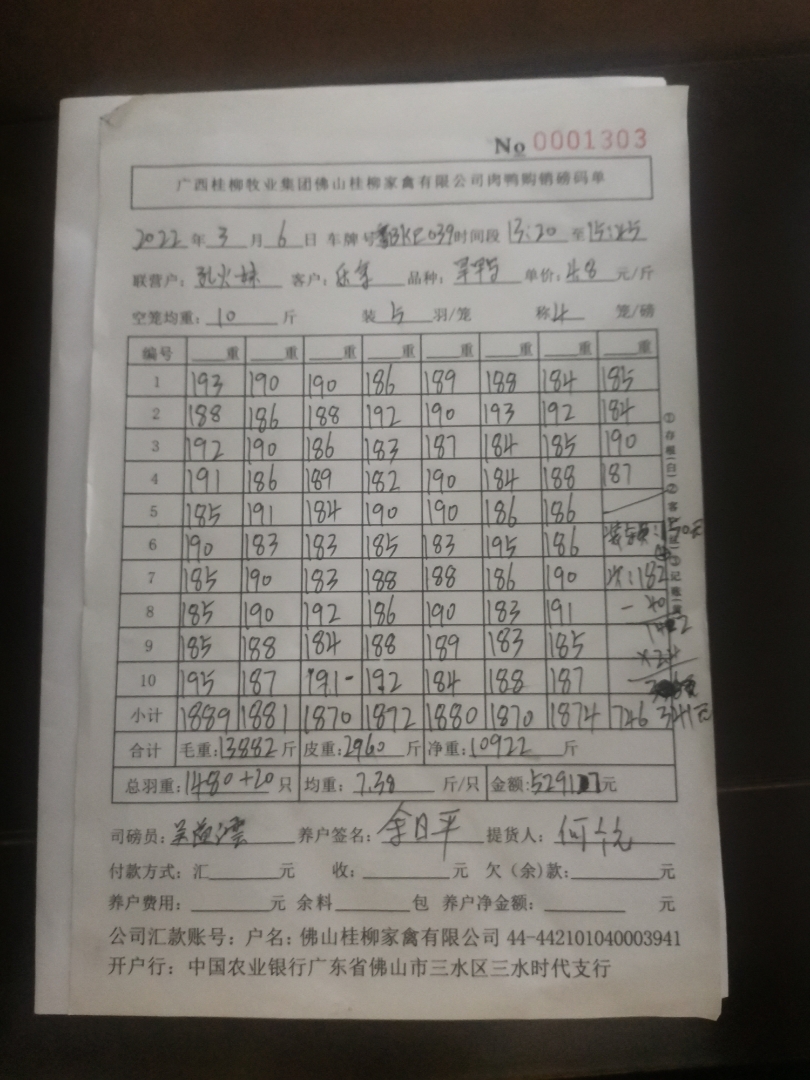 No 0001303
广西桂柳牧业集团佛山桂柳家禽有限公司肉鸭购销磅码单
2022年3月6日 车牌号 039 时间段 13:20 至 15:45
联营户: 孔火妹 客户: 乐 品种: 单价: 4.8 元/斤
空笼均重: 10 斤 装 5 羽/笼 称 4 笼/磅
编号 重 重 重 重 重 重 重 重
1 193 190 190 186 189 188 184 185
2 188 186 188 192 190 193 192 184
3 192 190 186 183 187 184 185 190
4 191 186 189 182 190 184 188 187
5 185 191 184 190 190 186 186
6 190 183 183 185 183 195 186
7 185 190 183 188 188 186 190 182
8 185 190 192 186 190 183 191 -40
9 185 188 184 188 189 183 185
10 195 187 191 192 184 188 187
小计 1889 1881 1870 1872 1880 1870 1874 746 341元
合计 毛重: 13882 斤 皮重: 2960 斤 净重: 10922 斤
总羽重: 1480+20 只 均重: 7.38 斤/只 金额: 529 7元
①存根(白)②客 ③记
司磅员: 养户签名: 余日平 提货人: 何
付款方式: 汇 元 收: 元 欠(余)款: 元
养户费用: 元 余料 包 养户净金额: 元
公司汇款账号: 户名: 佛山桂柳家禽有限公司 44-442101040003941
开户行: 中国农业银行广东省佛山市三水区三水时代支行